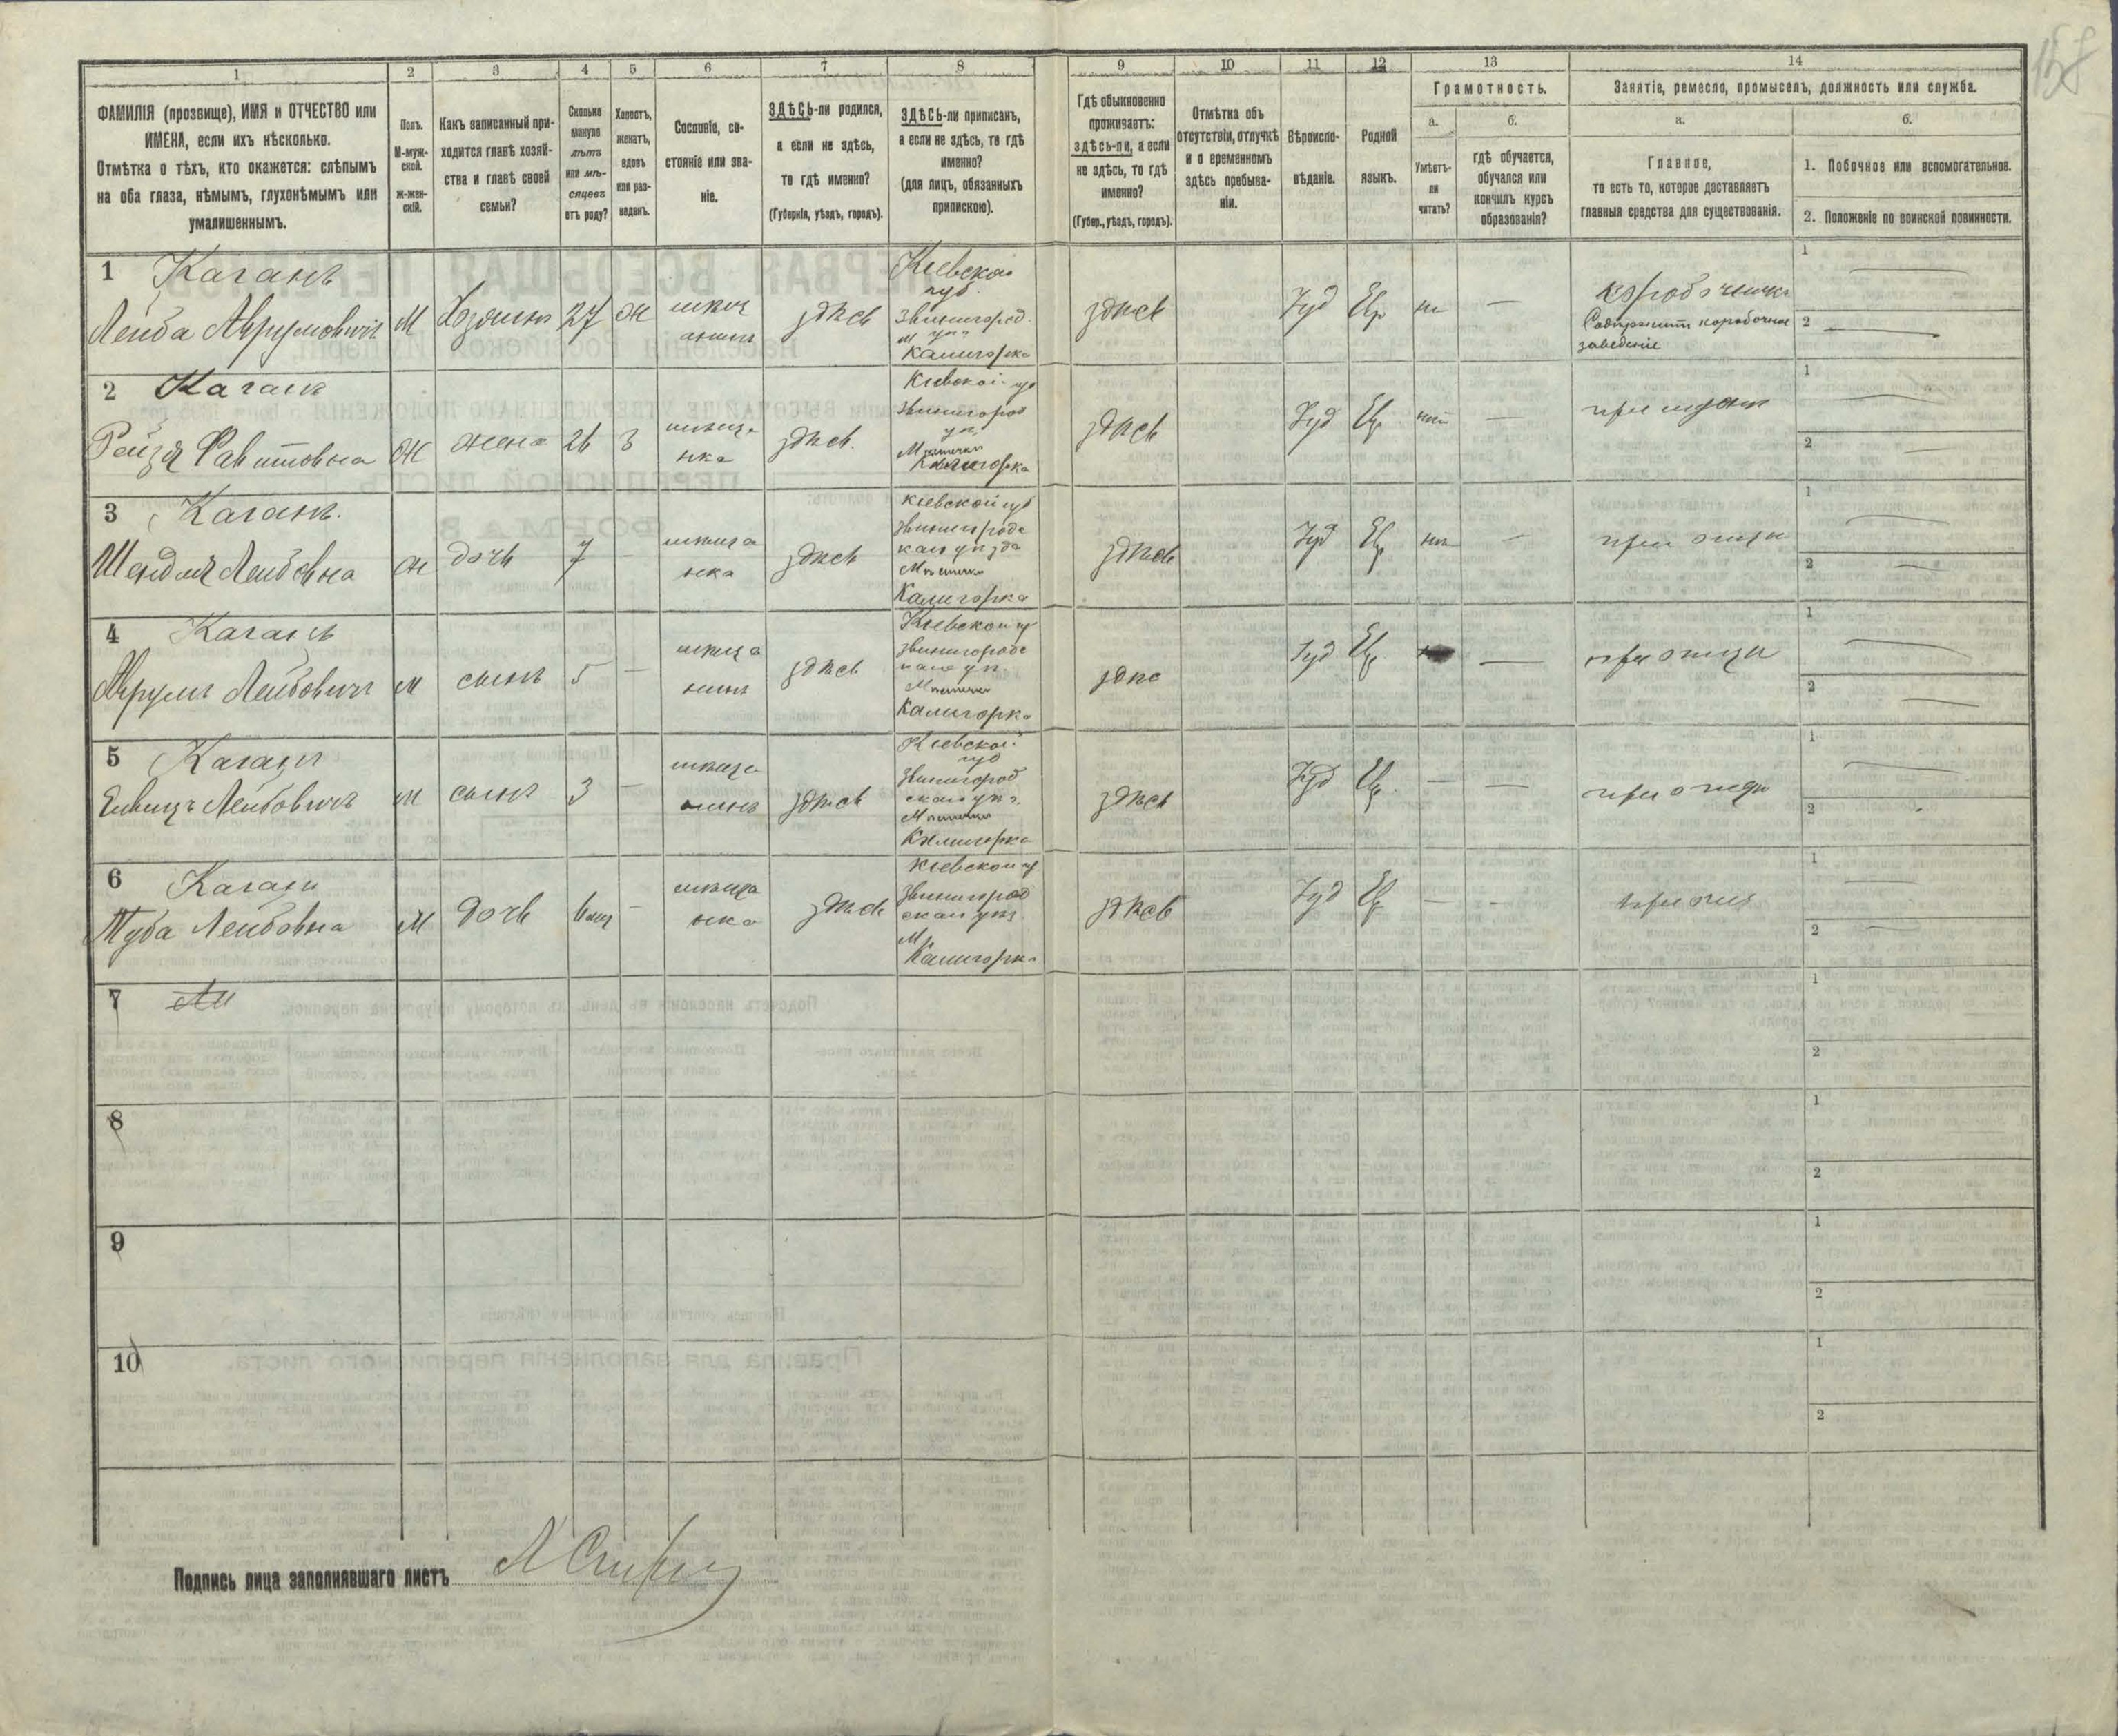 158
1
2
3
4
5
6
7
8
9
10
11
12
13
14
ФАМИЛІЯ (прозвище), ИМЯ и ОТЧЕСТВО или
ИМЕНА, если ихъ нѣсколько.
Отмѣтка о тѣхъ, кто окажется: слѣпымъ
на оба глаза, нѣмымъ, глухонѣмымъ или
умалишеннымъ.
Полъ.
М-муж-
ской.
Ж-жен-
скій.
Какъ записанный при-
ходится главѣ хозяй-
ства и главѣ своей
семьи?
Сколько
минуло
лѣтъ
или мѣ-
сяцевъ
отъ роду?
Холостъ,
женатъ,
вдовъ
или раз-
веденъ.
Сословіе, со-
стояніе или зва-
ніе.
ЗДѢСЬ-ли родился,
а если не здѣсь,
то гдѣ именно?
(Губернія, уѣздъ, городъ).
ЗДѢСЬ-ли приписанъ,
а если не здѣсь, то гдѣ
именно?
(для лицъ, обязанныхъ
припискою).
Гдѣ обыкновенно
проживаетъ:
здѣсь-ли, а если
не здѣсь, то гдѣ
именно?
(Губер., уѣздъ, городъ).
Отмѣтка объ
отсутствіи, отлучкѣ
и о временномъ
здѣсь пребыва-
ніи.
Вѣроиспо-
вѣданіе.
Родной
языкъ.
Грамотность.
а.
Умѣетъ-
ли
читать?
б.
гдѣ обучается,
обучался или
кончилъ курсъ
образованія?
Занятіе, ремесло, промыселъ, должность или служба.
а.
Главное,
то есть то, которое доставляетъ
главныя средства для существованія.
б.
1. Побочное или вспомогательное.
2. Положеніе по воинской повинности.
1 Каганъ
Лейба Аврумовичъ
М
Хозяинъ
27
ж
мѣщ
анинъ
здѣсь
Кіевской
губ.
Звенигород.
уѣз.
м
Калигорка
здѣсь
Іуд
Евр
нѣ
—
Содержитъ коробочное
заведеніе
1
2
2 Каганъ
Рейзя
Ж
жена
26
З
мѣща
нка
здѣсь.
Кіевской губ
Звенигород
уѣ.
Мѣстечко
Калигорка
здѣсь
Іуд
Евр
—
при мужѣ
1
2
3 Каганъ.
Шендля Лейбовна
ж
дочь
7
—
мѣща
нка
здѣсь
Кіевской губ
Звенигородс
каго уѣзда
Мѣстечко
Калигорка
здѣсь
Іуд
Евр
нѣ
—
при отцѣ
1
2
4 Каганъ
Аврумъ Лейбовичъ
м
сынъ
5
—
мѣща
нинъ
здѣсь
Кіевской гу
Звенигородс
каго уѣ.
Мѣстечко
Калигорка
здѣс
Іуд
Евр
—
при отцѣ
1
2
5 Каганъ
Лейбовичъ
м
сынъ
3
—
мѣща
нинъ
здѣсь
Кіевской
губ
Звенигород
скаго уѣз.
Мѣстечко
Калигорка
здѣсь
Іуд
Евр.
—
—
при отцѣ
1
2
6 Каганъ
Туба Лейбовна
М
дочь
6 мц
—
мѣща
нка
здѣсь
Кіевской гу
Звенигород
скаго уѣз
М
Калигорка
здѣсь
Іуд
Евр
—
-
1
2
7
1
2
8
1
2
9
1
2
10
1
2
Подпись лица заполнявшаго листъ